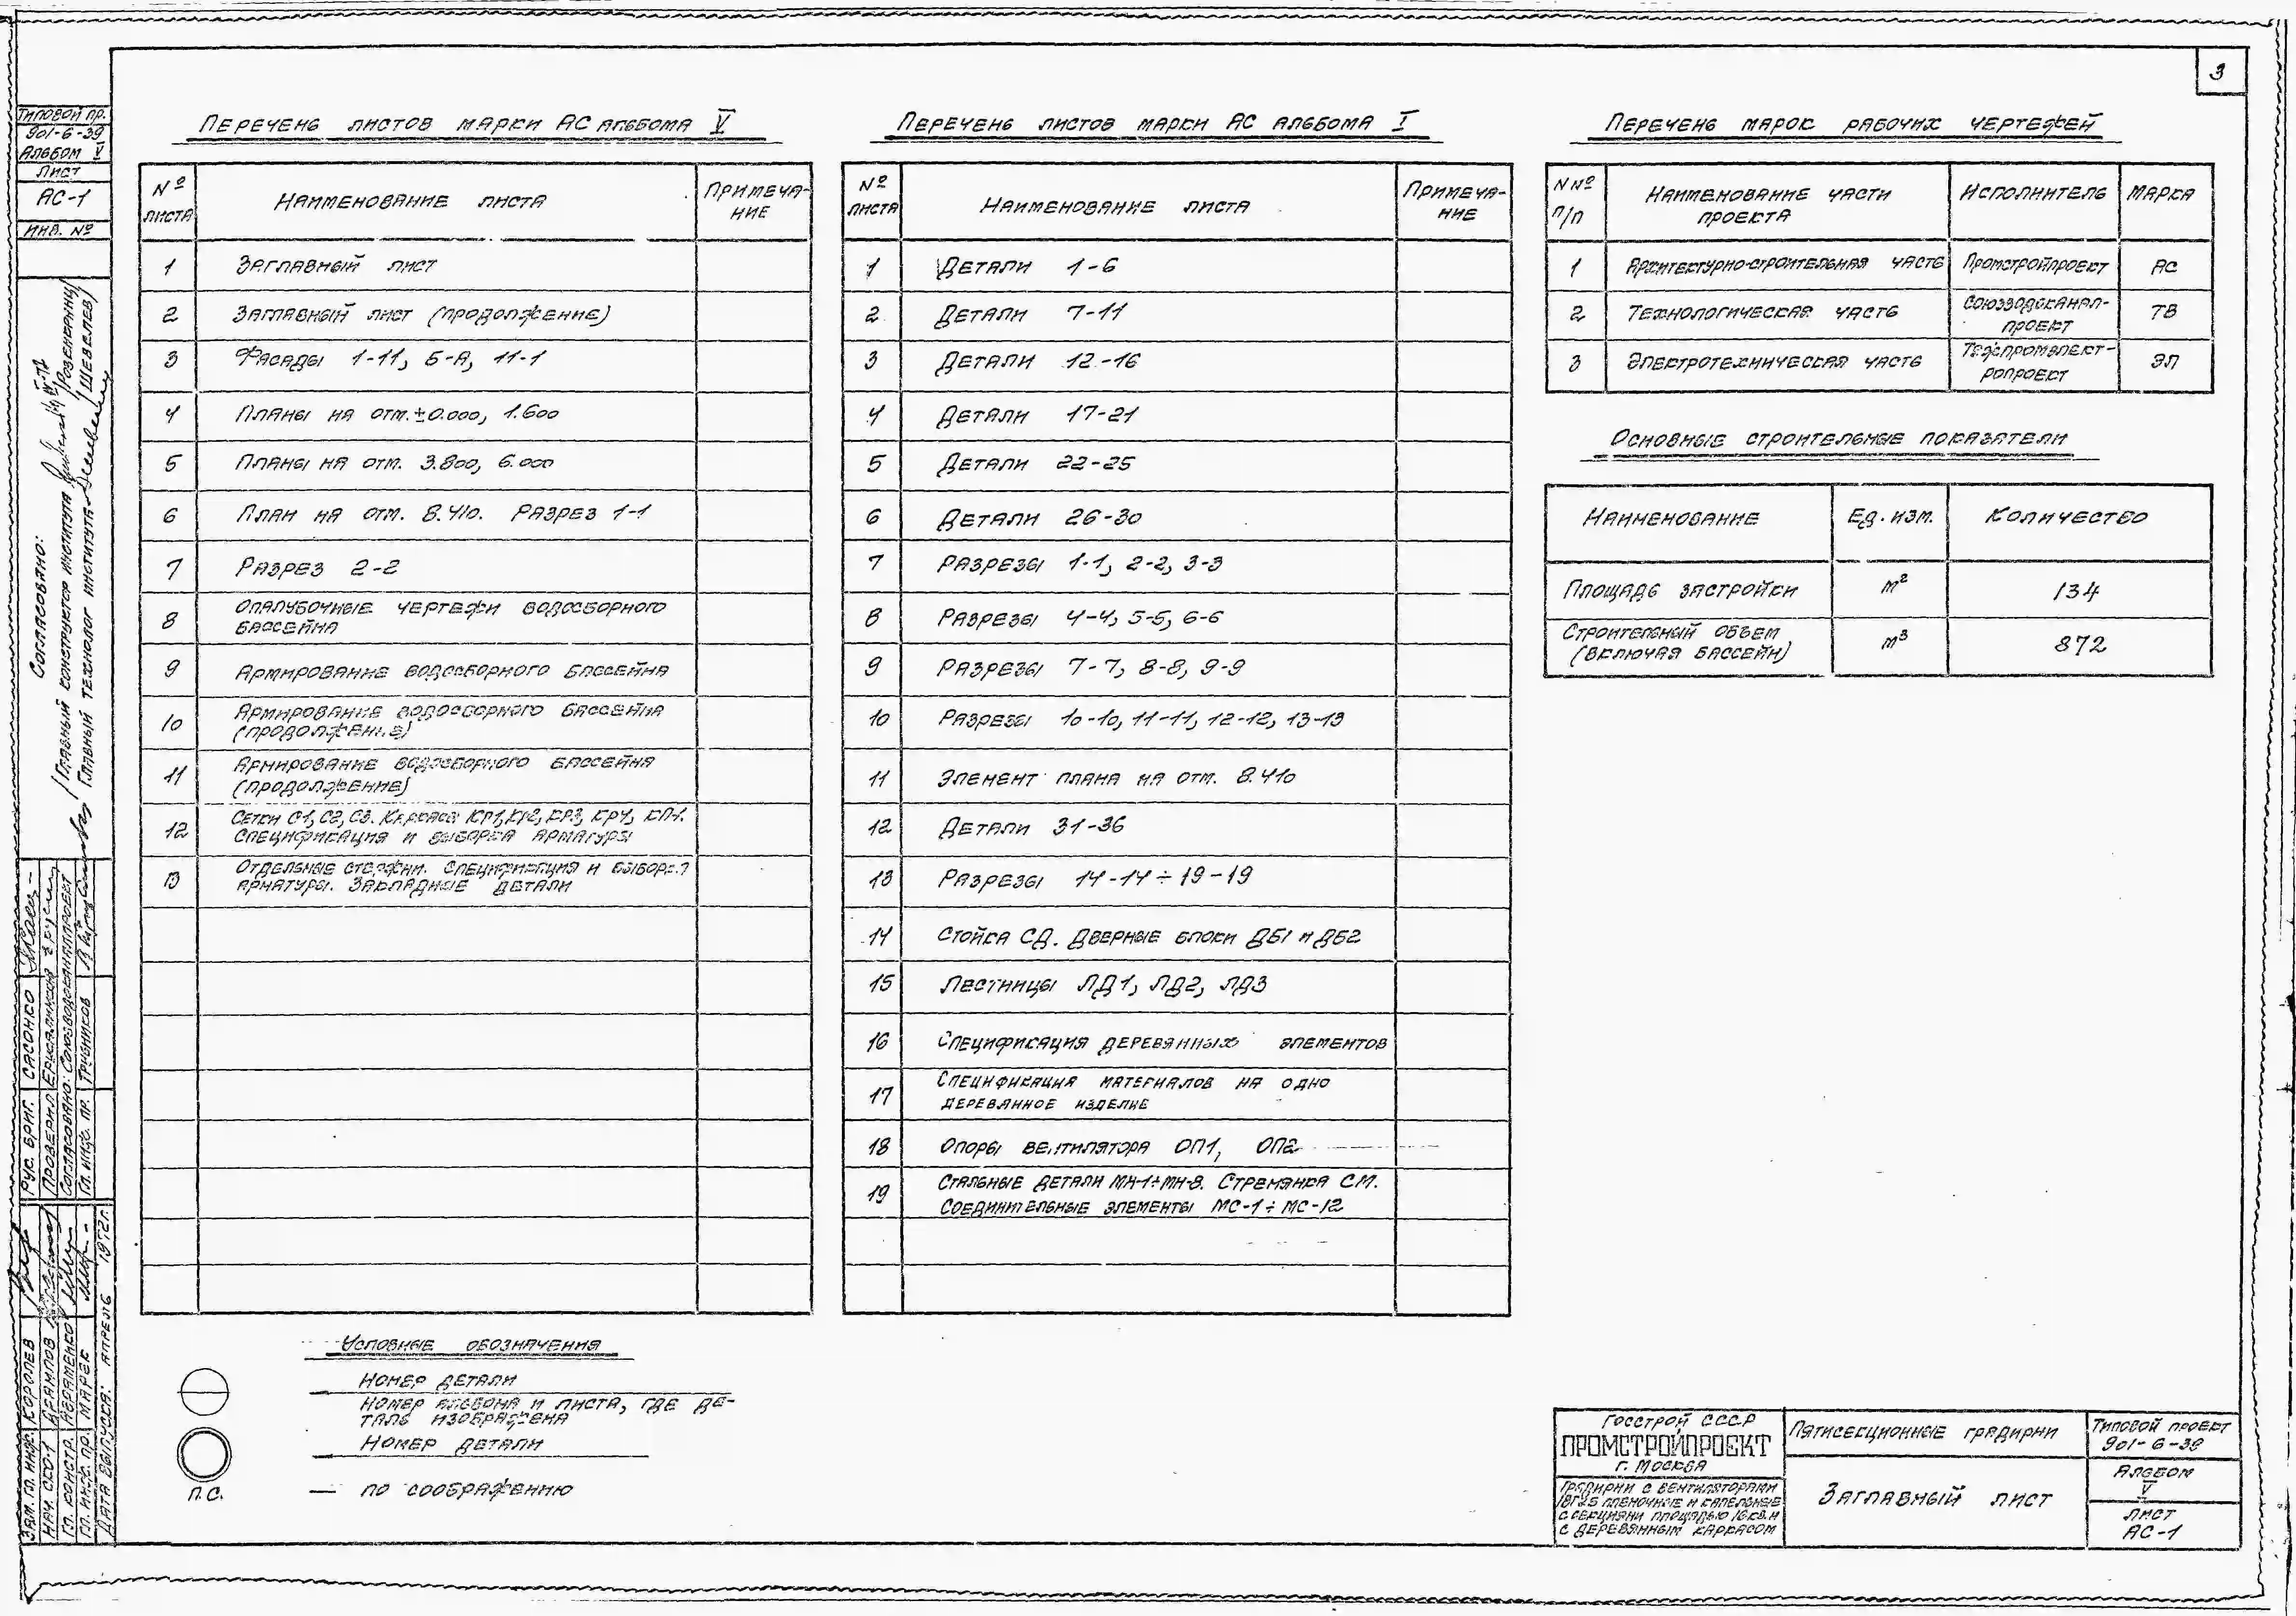 3
Типовой пр.
901-6-39
Альбом V
Лист
АС-1
Инв. №
Согласовано:
Главный конструктор института /Розенблюм/
Главный технолог института /Шевелев/
Рук. бриг. Сасонко
Проверил
Согласовано: Союзводоканалпроект
Гл. инж. пр. Трубников
Зам. гл. инж. Королев
Нач. СКО-1
Гл. констр. Авраменко
Гл. инж. пр. Марек
Дата выпуска: апрель 1972г.
Перечень листов марки АС альбома V
№ листа Наименование листа Примеча-
ние
1 Заглавный лист
2 Заглавный лист (продолжение)
3 Фасады 1-11, Б-А, 11-1
4 Планы на отм. ±0.000, 1.600
5 Планы на отм. 3.800, 6.000
6 План на отм. 8.410. Разрез 1-1
7 Разрез 2-2
8 Опалубочные чертежи водосборного
бассейна
9 Армирование водосборного бассейна
10 Армирование водосборного бассейна
(продолжение)
11 Армирование водосборного бассейна
(продолжение)
12 Сетки С1, С2, С3. Каркасы КР1, КР2, КР3, КР4, КП-1.
Спецификация и выборка арматуры
13 Отдельные стержни. Спецификация и выборка
арматуры. Закладные детали
Перечень листов марки АС альбома I
№ листа Наименование листа Примеча-
ние
1 Детали 1-6
2 Детали 7-11
3 Детали 12-16
4 Детали 17-21
5 Детали 22-25
6 Детали 26-30
7 Разрезы 1-1, 2-2, 3-3
8 Разрезы 4-4, 5-5, 6-6
9 Разрезы 7-7, 8-8, 9-9
10 Разрезы 10-10, 11-11, 12-12, 13-13
11 Элемент плана на отм. 8.410
12 Детали 31-36
13 Разрезы 14-14÷19-19
14 Стойка СД. Дверные блоки ДБ1 и ДБ2
15 Лестницы ЛД1, ЛД2, ЛД3
16 Спецификация деревянных элементов
17 Спецификация материалов на одно
деревянное изделие
18 Опоры вентилятора ОП1, ОП2
19 Стальные детали МН-1÷МН-8. Стремянка СМ.
Соединительные элементы МС-1÷МС-12
Перечень марок рабочих чертежей
N№ п/п Наименование части
проекта Исполнитель Марка
1 Архитектурно-строительная часть Промстройпроект АС
2 Технологическая часть Союзводоканал-
проект ТВ
3 Электротехническая часть Тяжпромэлект-
ропроект ЭЛ
Основные строительные показатели
Наименование Ед. изм. Количество
Площадь застройки м² 134
Строительный объем
(включая бассейн) м³ 872
Условные обозначения
Номер детали
Номер альбома и листа, где де-
таль изображена
Номер детали
П.С. — по соображению
Госстрой СССР
ПРОМСТРОЙПРОЕКТ
г. Москва
Градирни с вентиляторами
1ВГ25 пленочные и капельные
с секциями площадью 16 кв.м
с деревянным каркасом
Пятисекционные градирни
Заглавный лист
Типовой проект
901-6-39
Альбом
V
Лист
АС-1